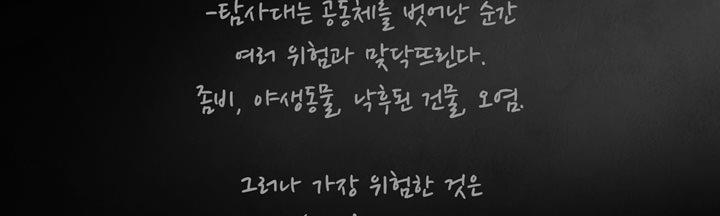 -탐사대는 공동체를 벗어난 순간
여러 위험과 맞닥뜨린다.
좀비, 야생동물, 낙후된 건물, 오염.
그러나 가장 위험한 것은